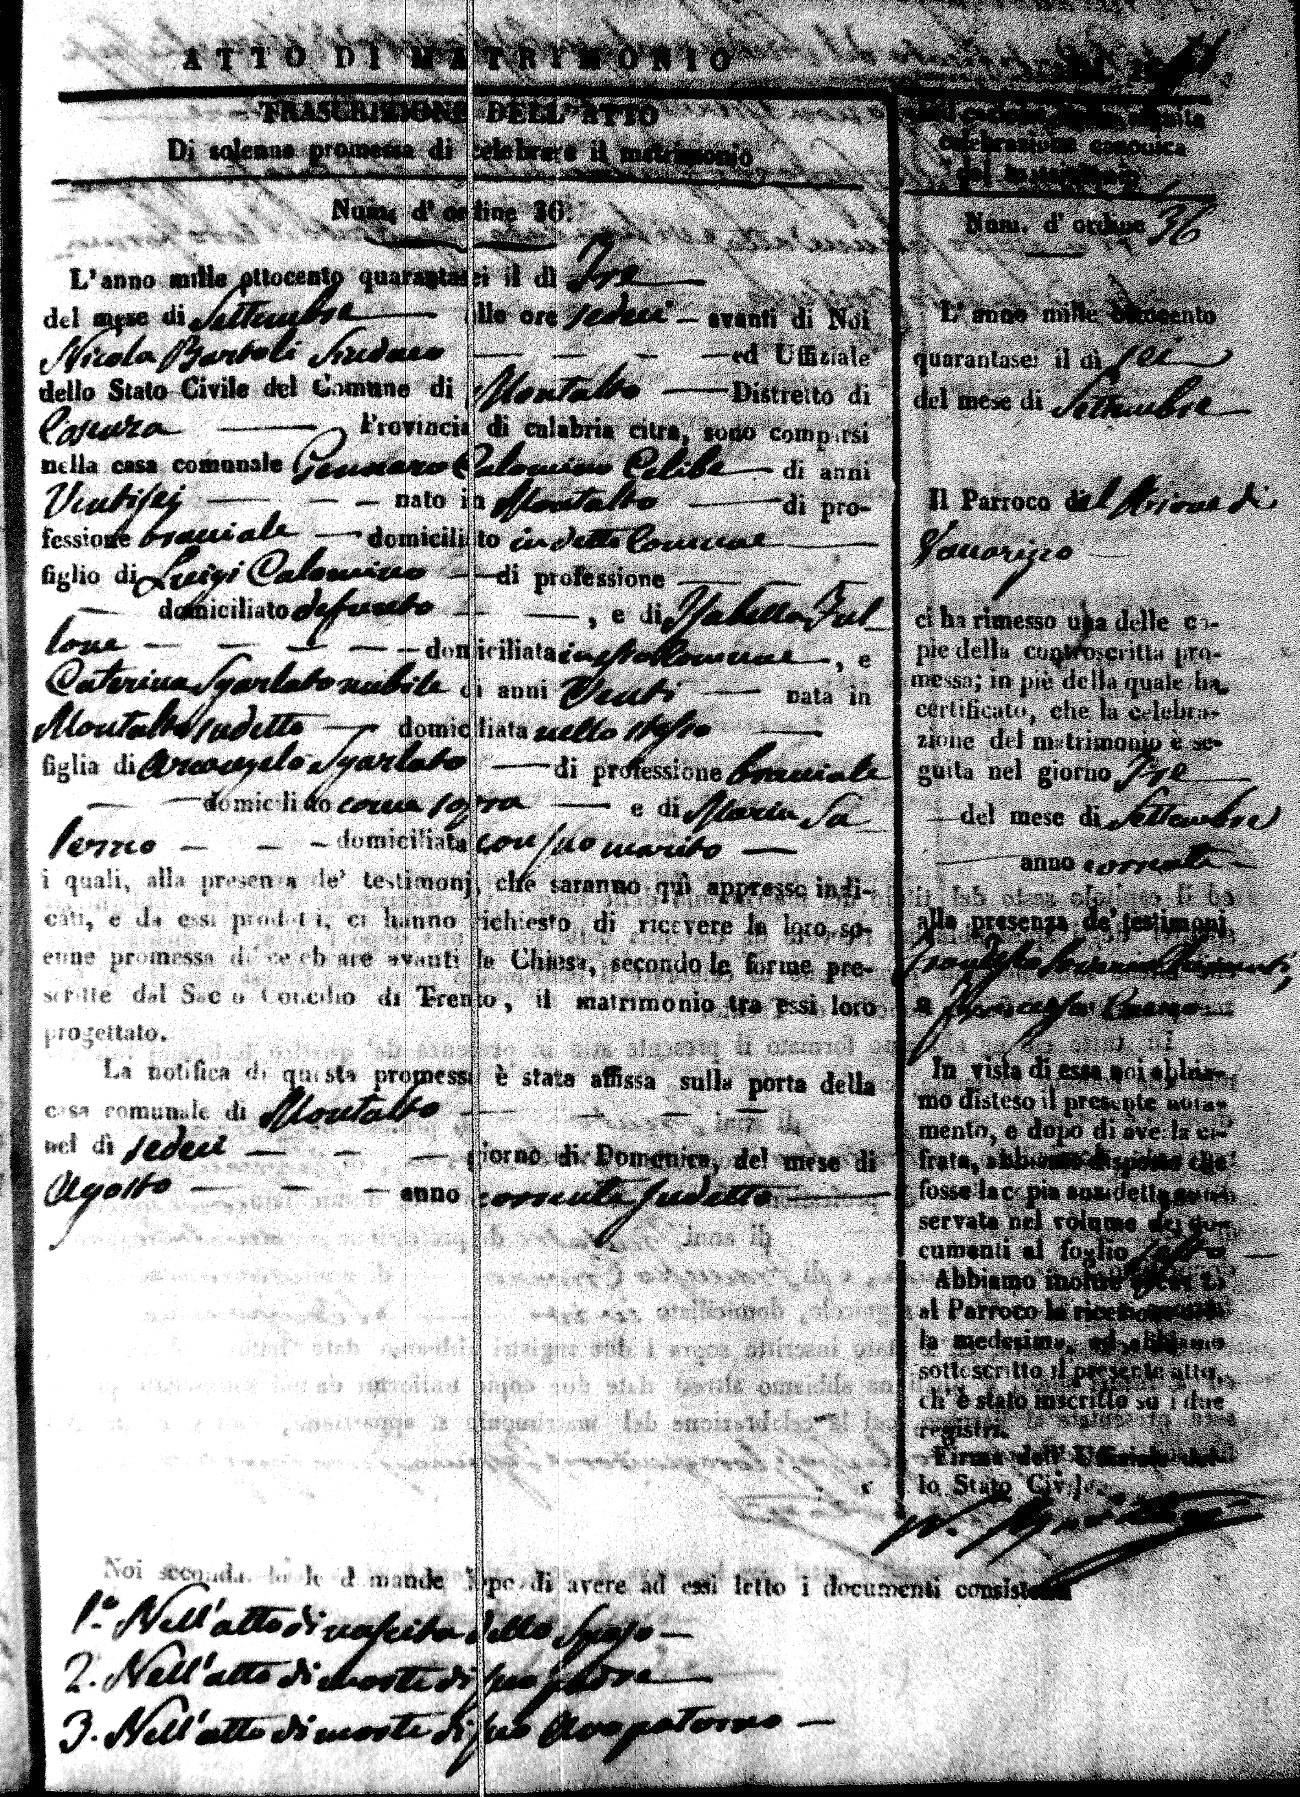 ATTO DI MATRIMONIO
TRASCRIZIONE DELL' ATTO
Di solenne promessa di celebrare il matrimonio
Num. d' ordine 36.
L' anno mille ottocento quarantasei il dì Tre
del mese di Settembre alle ore sedeci avanti di Noi
Nicola Bartoli Sindaco ed Uffiziale
dello Stato Civile del Comune di Montalto Distretto di
Cosenza Provincia di calabria citra, sono comparsi
nella casa comunale Gennaro Calomino Celibe di anni
Ventisei nato in Montalto di pro-
fessione bracciale domiciliato in detto Comune
figlio di Luigi Calomino di professione
domiciliato defunto , e di Isabella Ful
lone domiciliata in sto Comune , e
Caterina Sgarlato nubile di anni Venti nata in
Montalto sudetto domiciliata nello stesso
figlia di Arcangelo Sgarlato di professione bracciale
domiciliato come sopra e di Maria Sa
lerno domiciliata con suo marito
i quali, alla presenza de' testimonj, che saranno quì appresso indi-
cati, e da essi prodotti, ci hanno richiesto di ricevere la loro so-
enne promessa di celebrare avanti la Chiesa, secondo le forme pre-
scritte dal Sacro Concilio di Trento, il matrimonio tra essi loro
progettato.
La notifica di questa promessa è stata affissa sulla porta della
casa comunale di Montalto
nel dì sedeci giorno di Domenica, del mese di
Agosto anno corrente sudetto
Noi secondando le dimande dopo di avere ad essi letto i documenti consistenti
1.° Nell'atto di nascita dello Sposo
2. Nell'atto di morte di suo padre
3. Nell'atto di morte di suo Avo paterno
celebrazione canonica
del matrimonio
Num. d' ordine 36
L' anno mille ottocento
quarantasei il dì sei
del mese di Settembre
Il Parroco del Rione di
Vaccarizzo
ci ha rimesso una delle co-
pie della controscritta pro-
messa; in piè della quale ha
certificato, che la celebra-
zione del matrimonio è se-
guita nel giorno Tre
del mese di Settembre
anno corrente
alla presenza de' testimonj
e Francesco
In vista di essa noi abbia-
mo disteso il presente nota-
mento, e dopo di averla ci-
frata, abbiamo disposto che
fosse la copia anzidetta con-
servata nel volume dei do-
cumenti al foglio sesto
Abbiamo inoltre
al Parroco la ricezione del-
la medesima, ed abbiamo
sottoscritto il presente atto,
ch' è stato inscritto su i due
registri.
Firma dell' Uffiziale del-
lo Stato Civile
N. Bartoli